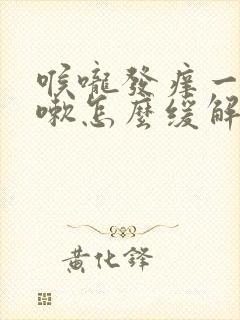 喉嚨發癢一
嗽怎麼緩解
黃化鋒